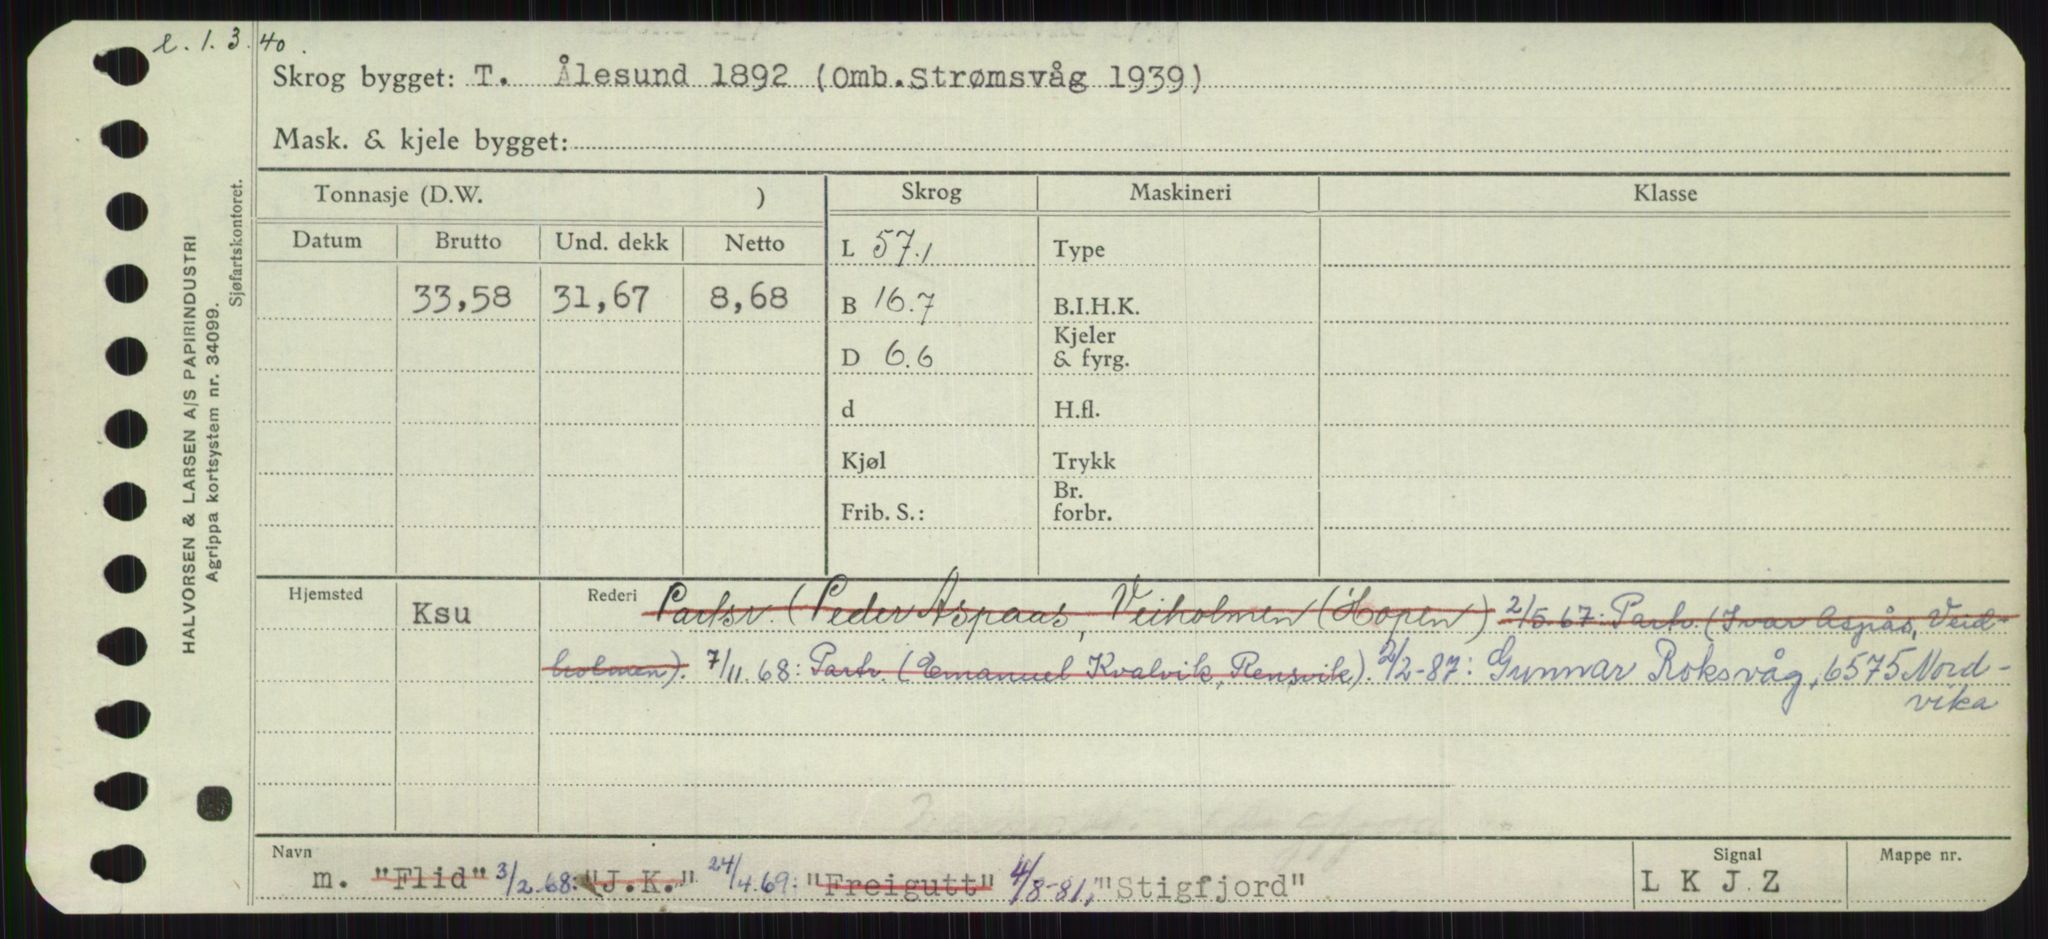 l. 1. 3. 40.
Skrog bygget: T. Ålesund 1892 (Omb.Strømsvåg 1939)
Mask. & kjele bygget:
HALVORSEN & LARSEN A/S PAPIRINDUSTRI
Agrippa kortsystem nr. 34099.
Sjøfartskontoret.
Tonnasje (D.W. ) Skrog Maskineri Klasse
Datum Brutto Und. dekk Netto L 57.1 Type
33,58 31,67 8,68 B 16.7 B.I.H.K.
Kjeler
D 6.6 & fyrg.
d H.fl.
Kjøl Trykk
Br.
Frib. S.: forbr.
Hjemsted Ksu Rederi Partsr. (Peder Aspaas, Veiholmen (Hopen) 2/5.67: Partr. (Ivar Aspås, Veid-
holmen). 7/11.68: Partr. (Emanuel Kvalvik, Rensvik). 2/2-87: Gunnar Roksvåg, 6575 Nord-
vika
Navn Signal Mappe nr.
m. "Flid" 3/2.68: "J.K." 24/4.69: "Freigutt" 4/8-81; "Stigfjord" L K J Z